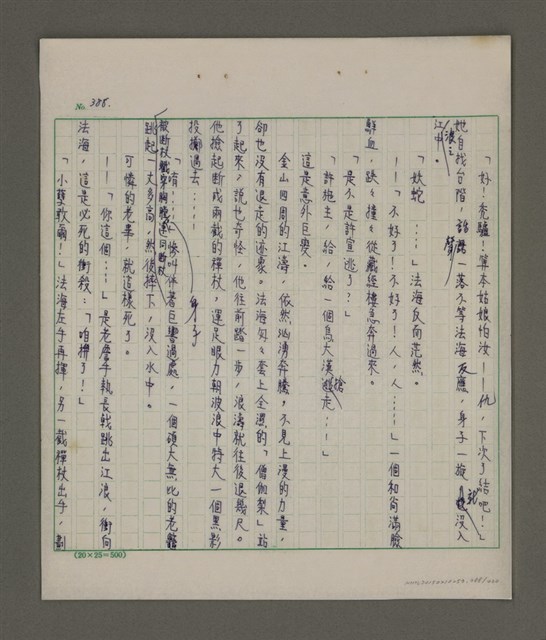 No. 388.
「好!禿驢!算本姑娘怕汝——仇,下次了結吧!」
她自找台階,話聲一落不等法海反應,身子一旋就沒入
江中浪之。
「妖蛇……」法海反向茫然。
——「不好了!不好了!人,人……」一個和尚滿臉
鮮血,跌跌撞撞從藏經樓急奔過來。
「是不是許宣逃了?」
「許施主,給,給一個烏大漢搶走…!」
這是意外巨變。
金山四周的江濤,依然洶湧奔騰,不見上漫的力量,
卻也沒有退走的迹象。法海匆匆套上全濕的「僧伽梨」站
了起來,說也奇怪,他往前踏一步,浪濤就往後退幾尺。
他撿起斷成兩截的禪杖,運足眼力朝波浪中特大一個黑影
投擲過去……
「唷!……」慘叫伴著巨響過處,一個碩大無比的老龞
被斷杖戳穿胸膛連同斷杖
身子
跳起一丈多高,然後摔下,沒入水中。
可憐的老龞!就這樣死了。
——「你這個…」是老龞手執長戟跳出江浪,衝向
法海,這是必死的衝殺:「咱拚了!」
「小孽敢爾!」法海左手再揮,另一截禪杖出手,
(20×25=500)